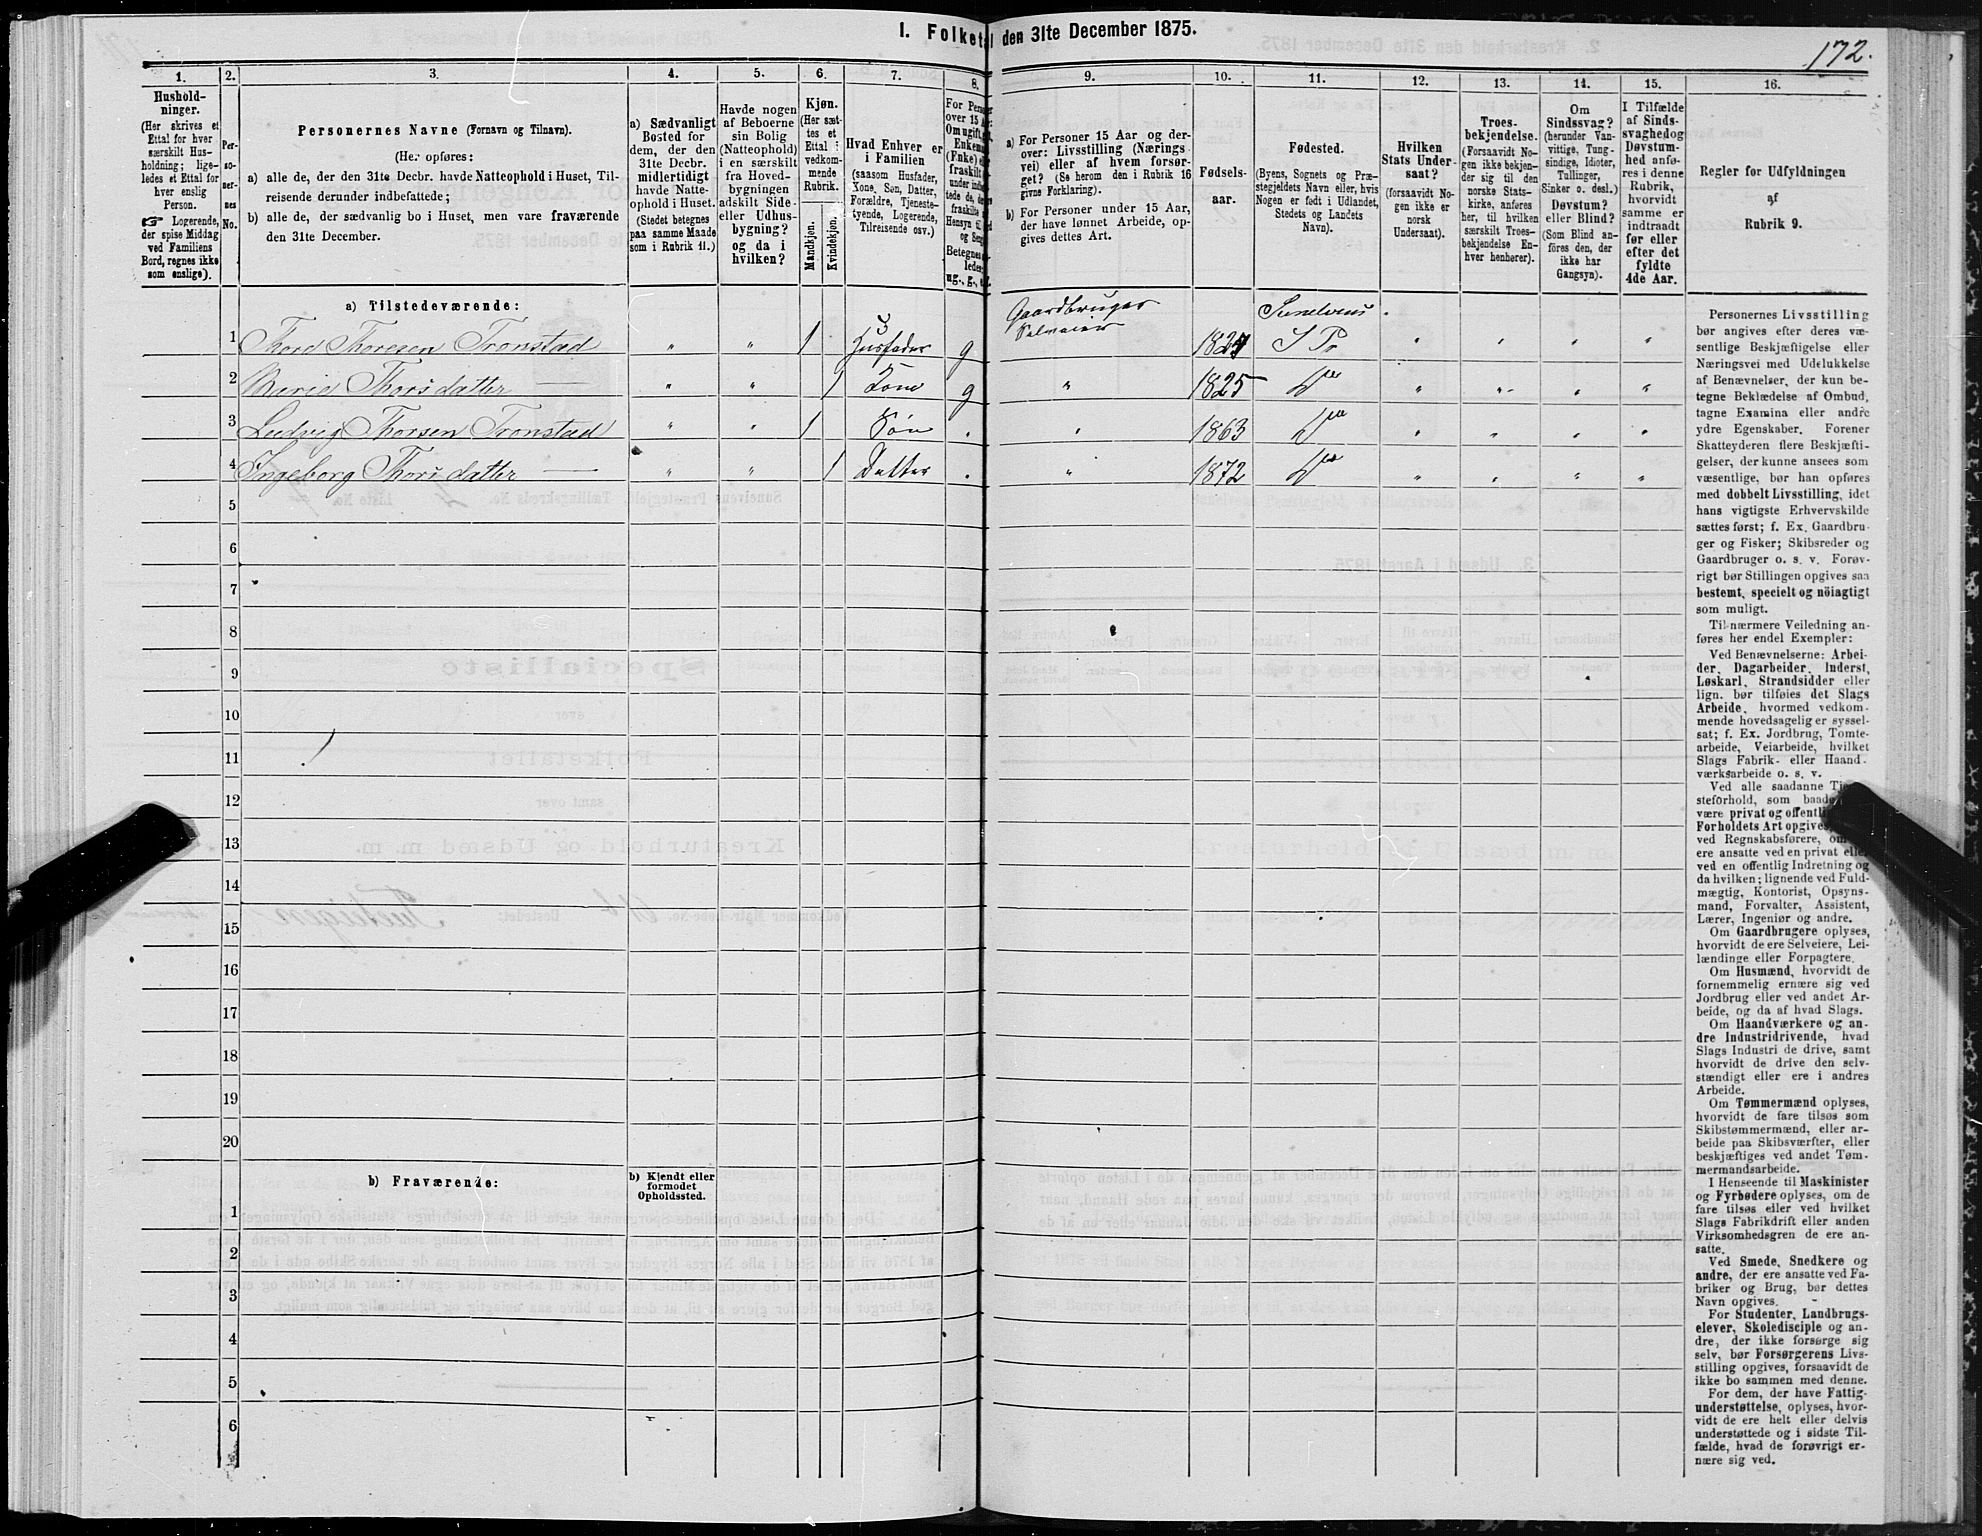 172.
I. Folketal den 31te December 1875.
1.
2.
3.
4.
5.
6.
7.
8.
9.
10.
11.
12.
13.
14.
15.
16.
Hushold-
ninger.
(Her skrives et
Ettal for hver
særskilt Hus-
holdning; lige-
ledes et Ettal for
hver enslig
Person.
☞ Logerende,
der spise Middag
ved Familiens
Bord, regnes ikke
som enslige).
Per-
so-
ner-
nes
No.
Personernes Navne (Fornavn og Tilnavn).
(Her opføres:
a) alle de, der den 31te Decbr. havde Natteophold i Huset, Til-
reisende derunder indbefattede;
b) alle de, der sædvanlig bo i Huset, men vare fraværende
den 31te December.
a) Sædvanligt
Bosted for
dem, der den
31te Decbr.
midlertidigt
havde Natte-
ophold i Huset.
(Stedet betegnes
paa samme Maade
som i Rubrik 11.)
Havde nogen
af Beboerne
sin Bolig
(Natteophold)
i en særskilt
fra Hoved-
bygningen
adskilt Side-
eller Udhus-
bygning?
og da i
hvilken?
Kjøn.
(Her sæt-
tes et
Ettal i
vedkom-
mende
Rubrik.
Mandkjøn.
Kvindekjøn.
Hvad Enhver er
i Familien
(saasom Husfader,
Kone, Søn, Datter,
Forældre, Tjeneste-
tyende, Logerende,
Tilreisende osv.)
For Perso
over 15 A
Om ugift,
Enkema
(Enke) e
fraskilt
Betegnes
ledes:
ug., g.,
a) For Personer 15 Aar og der-
over: Livsstilling (Nærings
vei) eller af hvem forsør-
get? (Se herom den i Rubrik 16
givne Forklaring).
b) For Personer under 15 Aar,
der have lønnet Arbeide, op-
gives dettes Art.
Fødsels-
aar.
Fødested.
(Byens, Sognets og Præ-
stegjeldets Navn eller, hvis
Nogen er født i Udlandet,
Stedets og Landets
Navn).
Hvilken
Stats Under-
saat?
(forsaavidt No-
gen ikke er
norsk
Undersaat).
Troes-
bekjendelse.
(Forsaavidt No-
gen ikke bekjen-
der sig til den
norske Stats-
kirke, anføres
her, til hvilken
særskilt Troes-
bekjendelse En-
hver henhører).
Om
Sindssvag?
(herunder Van-
vittige, Tung-
sindige, Idioter,
Tullinger,
Sinker o. desl.)
Døvstum?
eller Blind?
(Som Blind an-
føres den, der
ikke har
Gangsyn).
I Tilfælde
af Sinds-
svaghedog
Døvstum-
hed anfø-
res i denne
Rubrik,
hvorvidt
samme er
indtraadt
før eller
efter det
fyldte
4de Aar.
Regler for Udfyldningen
af
Rubrik 9.
a) Tilstedeværende:
1 Thord Thoresen Tronstad " " 1 Husfader g Gaardbruger Selveier 1824 Sunelvens S Pr " " " "
2 Marie Thorsdatter — " " 1 Kone g " 1825 Do " " " "
3 Ludvig Thorsen Tronstad " " 1 Søn . " 1863 Do " " " "
4 Ingeborg Thorsdatter — " " 1 Datter . " 1872 Do " " " "
5
6
7
8
9
10
11
12
13
14
15
16
17
18
19
20
b) Fraværende:
b) Kjendt eller
formodet
Opholdssted.
1
2
3
4
5
6
Personernes Livsstilling
bør angives efter deres væ-
sentlige Beskjæftigelse eller
Næringsvei med Udelukkelse
af Benævnelser, der kun be-
tegne Beklædelse af Ombud,
tagne Examina eller andre
ydre Egenskaber. Forener
Skatteyderen flere Beskjæfti-
gelser, der kunne ansees som
væsentlige, bør han opføres
med dobbelt Livsstilling, idet
hans vigtigste Erhvervskilde
sættes først; f. Ex. Gaardbru-
ger og Fisker; Skibsreder og
Gaardbruger o. s. v. Forøv-
rigt bør Stillingen opgives saa
bestemt, specielt og nöiagtigt
som muligt.
Til nærmere Veiledning an-
føres her endel Exempler:
Ved Benævnelserne: Arbei-
der, Dagarbeider, Inderst,
Løskarl, Strandsidder eller
lign. bør tilføies det Slags
Arbeide, hvormed vedkom-
mende hovedsagelig er syssel-
sat; f. Ex. Jordbrug, Tomte-
arbeide, Veiarbeide, hvilket
Slags Fabrik- eller Haand-
værksarbeide o. s. v.
Ved alle saadanne Tj
steforhold, som baade
være privat og offentli
Forholdets Art opgives,
ved Regnskabsførere, om
ere ansatte ved en privat elle
ved en offentlig Indretning og
da hvilken; lignende ved Fuld-
mægtig, Kontorist, Opsyns-
mand, Forvalter, Assistent,
Lærer, Ingeniør og andre.
Om Gaardbrugere oplyses,
hvorvidt de ere Selveiere, Lei-
lændinge eller Forpagtere.
Om Husmænd, hvorvidt de
fornemmelig ernære sig ved
Jordbrug eller ved andet Ar-
beide, og da af hvad Slags.
Om Haandværkere og an-
dre Industridrivende, hvad
Slags Industri de drive, samt
hvorvidt de drive den selv-
stændigt eller ere i andres
Arbeide.
Om Tømmermænd oplyses,
hvorvidt de fare tilsøs som
Skibstømmermænd, eller ar-
beide paa Skibsværfter, eller
beskjæftiges ved andet Tøm-
mermandsarbeide.
I Henseende til Maskinister
og Fyrbødere oplyses, om de
fare tilsøs eller ved hvilket
Slags Fabrikdrift eller anden
Virksomhedsgren de ere an-
satte.
Ved Smede, Snedkere og
andre, der ere ansatte ved Fa-
briker og Brug, bør dettes
Navn opgives.
For Studenter, Landbrugs-
elever, Skoledisciple og an-
dre, der ikke forsørge sig
selv, bør Forsørgerens Livs-
stilling opgives, forsaavidt de
ikke bo sammen med denne.
For dem, der have Fattig-
understøttelse, oplyses, hvor-
vidt de ere helt eller delvis
understøttede og i sidste Til-
fælde, hvad de forøvrigt er-
nære sig ved.